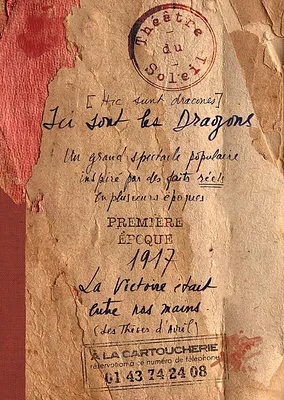 Théâtre
du
Soleil
[Hic sunt dracones]
Ici sont les Dragons
Un grand spectacle populaire
inspiré par des faits réels
en plusieurs époques
PREMIÈRE
ÉPOQUE
1917
La Victoire était
entre nos mains.
(Les Thèses d'Avril)
À LA CARTOUCHERIE
réservation à ce numéro de téléphone
01 43 74 24 08